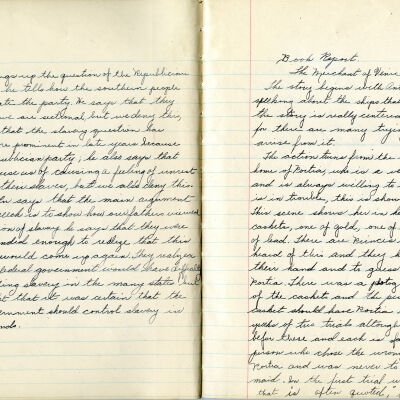 ngs up the question of the Republican
he tells how the southern people
ate the party. He says that they
we are sectional, but we deny this,
that the slavery question has
re prominent in late years because
ublican party; he also says that
accuse us of causing a feeling of unrest
their slaves, but we also deny this.
ln says that the main argument
eech is to show how our fathers viewed
ion of slavery he says that they were
nded enough to realize that this
would come up again. They realize a
ederal government would have difficulty
ling slavery in the many states but
t that it was certain that the
ernment should control slavery in
nds.
Book Report
The Merchant of Venice
The story begins with An
speaking about the ships that
the story is really centered
for there are many
arrise from it.
The action turns from the
home of Portia, who is a we
and is always willing to
is in trouble, this is show
This scene shows her in he
caskets, one of gold, one of
of lead. There are Princes
heard of this and they h
their hand and to guess
Portia. There was a
of the caskets and the pe
casket should have Portia
of two trials altho
before these and each is
person who chose the wron
Portia and was never to
maid. In the first trial w
that is often quoted, "